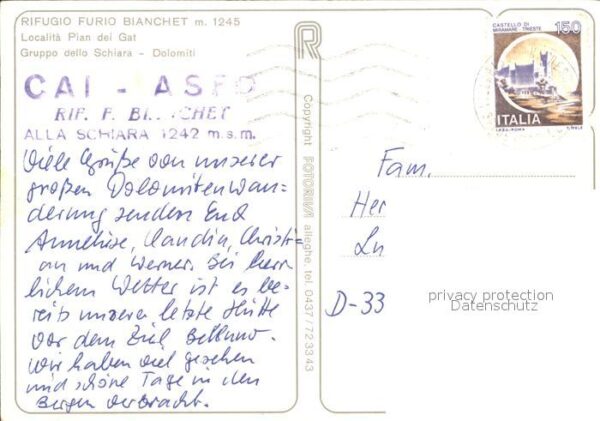 RIFUGIO FURIO BIANCHET m. 1245
Località Pian dei Gat
Gruppo dello Schiara - Dolomiti
CAI - ASFO
RIF. F. BI CHET
ALLA SCHIARA 1242 m.s.m.
Viele Grüße von unserer
großen Dolomitenwan=
derung senden Euch
Anneliese, Claudia, Christi=
an und Werner. Bei herr
lichem Wetter ist es be=
reits unsere letzte Hütte
vor dem Ziel Belluno.
Wir haben viel gesehen
und schöne Tage in den
Bergen verbracht.
R
Copyright FOTORIVA alleghe, tel. 0437/723343
CASTELLO DI
MIRAMARE - TRIESTE
150
ITALIA
Fam.
Her
Ln
D-33
privacy protection
Datenschutz